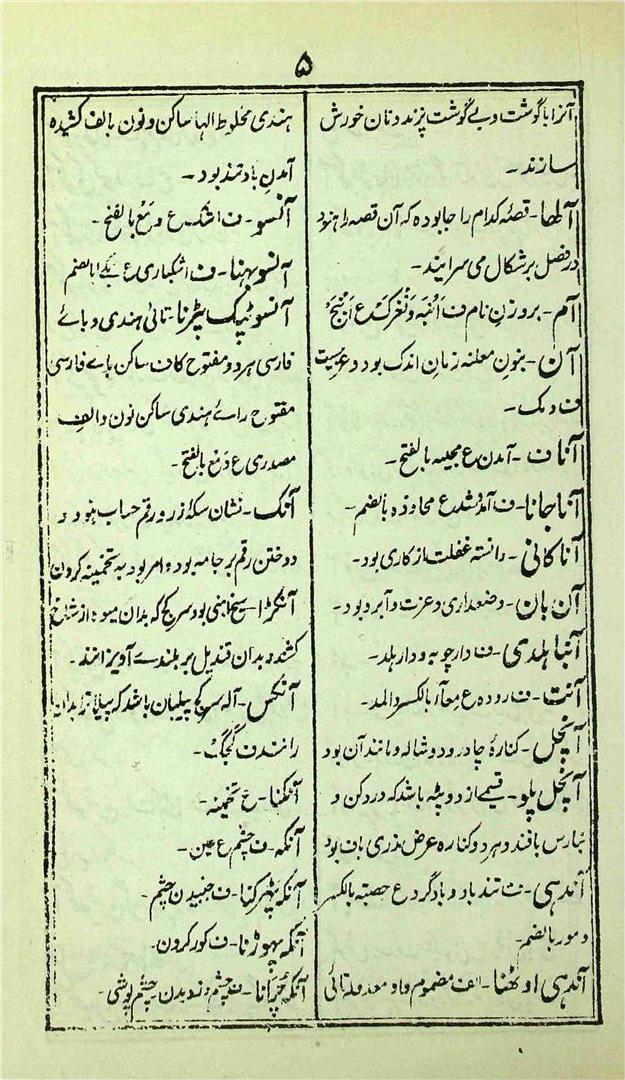 ۵
آنرا باگوشت و بے گوشت پزند و نان خورش
سازند۔
آلھا۔ قصۂ کدام را جا بوده که آن قصه را هنود
در فصل برشکال می سرایند۔
آم۔ بروزن نام ف اَنْبَه وَنَغْزَکْ ع اَنْبَج
آن۔ بنون معلنه زمان اندک بود و عربیست
ف و مک۔
آنا ف۔ آمدن ع مجیئه بالفتح۔
آنا جانا۔ ف آمدوشد ع محاوذه بالضم۔
آنا کانی۔ دانسته غفلت از کاری بود۔
آن بان۔ وضعداری و عزت و آبرو بود۔
آنبا ہلدی۔ ف دارچوبه و دار ہلد۔
آنت۔ ف روده ع مِعآء بالکسر والمد۔
آنچل۔ کنارۂ چادر و دوشاله و مانند آن بود
آنچل پلو۔ قسمے از دوپٹه باشد که در دکن و
بنارس بافند و هر دو کناره عرض مذری باف بود
آندہی۔ ف تندباد و بادگرد ع حصبة بالکسر
و مور بالضم۔
آندہی اوٹھنا۔ الف مضموم و واو معدوله تائی
هندی مخلوط الها ساکن و نون بالف کشیده
آمدنِ باد تند بود۔
آنسو۔ ف اشک ع دَمْع بالفتح۔
آنسو بہنا۔ ف اشکباری ع بُکا بالضم
آنسو ٹپک پڑنا۔ تائی هندی و بائے
فارسی هر دو مفتوح کاف ساکن باے فارسی
مفتوح راے هندی ساکن نون و الف
مصدری ع دَمْع بالفتح۔
آنک۔ نشان سکۂ زر و رقم حساب هنود و
دوختن رقم بر جامه بود و امر بود به تخمینه کردن
آنکڑا۔ سیخ آهنی بود سرکج که بدان میوه از شاخ
کشند و بدان قندیل بر بلندے آویزانند۔
آنکس۔ آله سرکج پیلبان باشد که پیل را بدان
رانند ف کجک۔
آنکنا۔ ع تخمینه۔
آنکہ۔ ف چشم ع عین۔
آنکہ پھڑکنا۔ ف جنبیدن چشم۔
آنکہ پھوڑنا۔ ف کور کردن۔
آنکہ چُرَانا۔ ف چشم دزدیدن۔ چشم پوشی۔